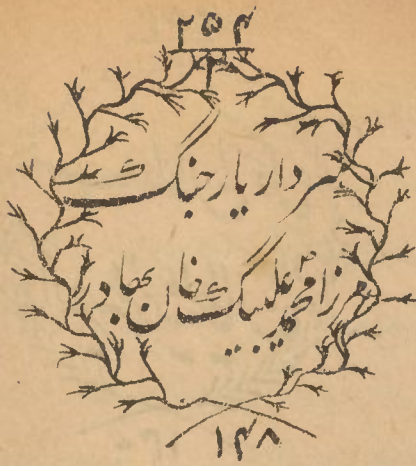 ۲۵۴
۲
سردار یار جنگ
مرزا محمد علی بیگ خان بهادر
۱۴۸